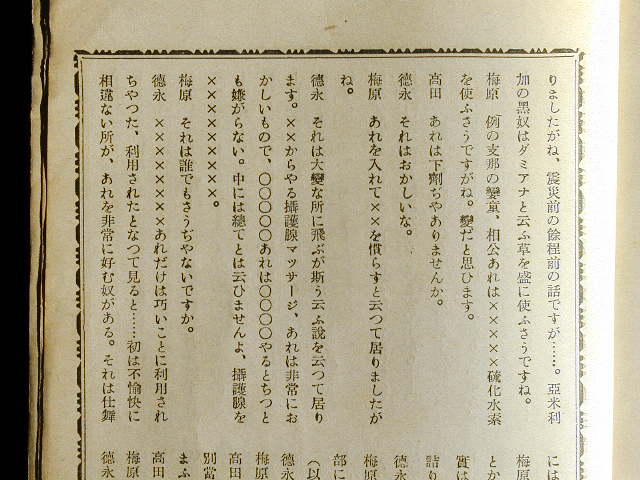 りましたがね、震災前の餘程前の話ですが……。亞米利
加の黑奴はダミアナと云ふ草を盛に使ふさうですね。
梅原　例の支那の孌童、相公あれは××××硫化水素
を使ふさうですがね。變だと思ひます。
高田　あれは下劑ぢやありませんか。
德永　それはおかしいな。
梅原　あれを入れて××を慣らすと云つて居りましたが
ね。
德永　それは大變な所に飛ぶが斯う云ふ說を云つて居り
ます。××からやる攝護腺マッサージ、あれは非常にお
かしいもので、〇〇〇〇あれは〇〇〇〇やるとちつと
も嫌がらない。中には總てとは云ひませんよ、攝護腺を
××××××××。
梅原　それは誰でもさうぢやないですか。
德永　×××××××あれだけは巧いことに利用され
ちやつた、利用されたとなつて見ると……初は不愉快に
相違ない所が、あれを非常に好む奴がある。それは仕舞
には
梅原
とか
實は
詰り
德永
梅原
部に
（以
德永
梅原
高田
別當
まふ
高田
梅原
德永